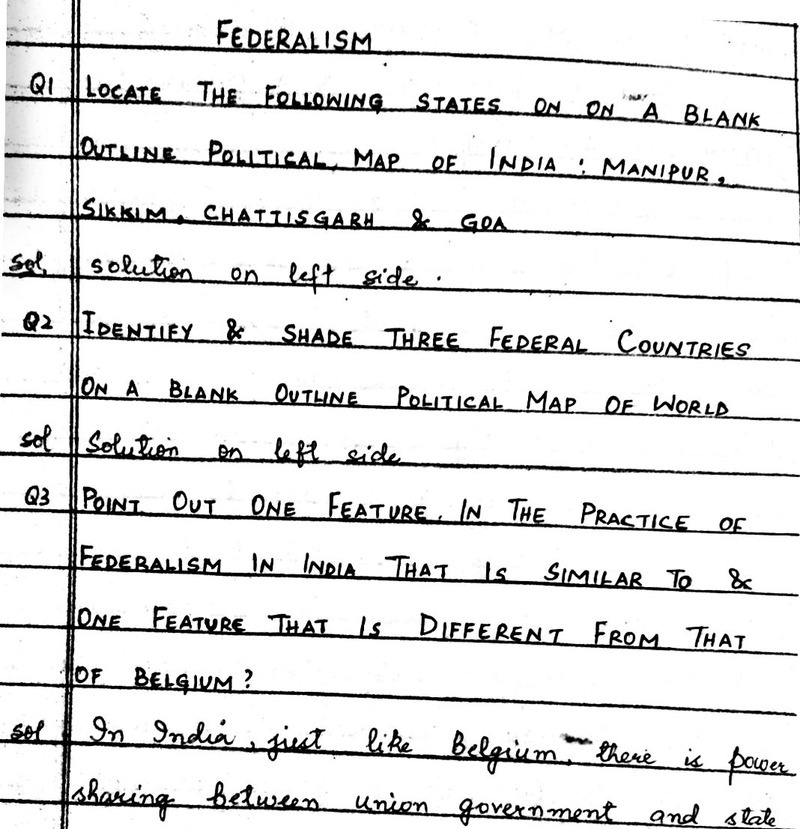 FEDERALISM
Q1 LOCATE THE FOLLOWING STATES ON ON A BLANK
OUTLINE POLITICAL MAP OF INDIA : MANIPUR,
SIKKIM, CHATTISGARH & GOA
sol. solution on left side.
Q2 IDENTIFY & SHADE THREE FEDERAL COUNTRIES
ON A BLANK OUTLINE POLITICAL MAP OF WORLD
sol Solution on left side
Q3 POINT OUT ONE FEATURE. IN THE PRACTICE OF
FEDERALISM IN INDIA THAT IS SIMILAR TO &
ONE FEATURE THAT IS DIFFERENT FROM THAT
OF BELGIUM?
sol In India, just like Belgium, there is power
sharing between union government and state